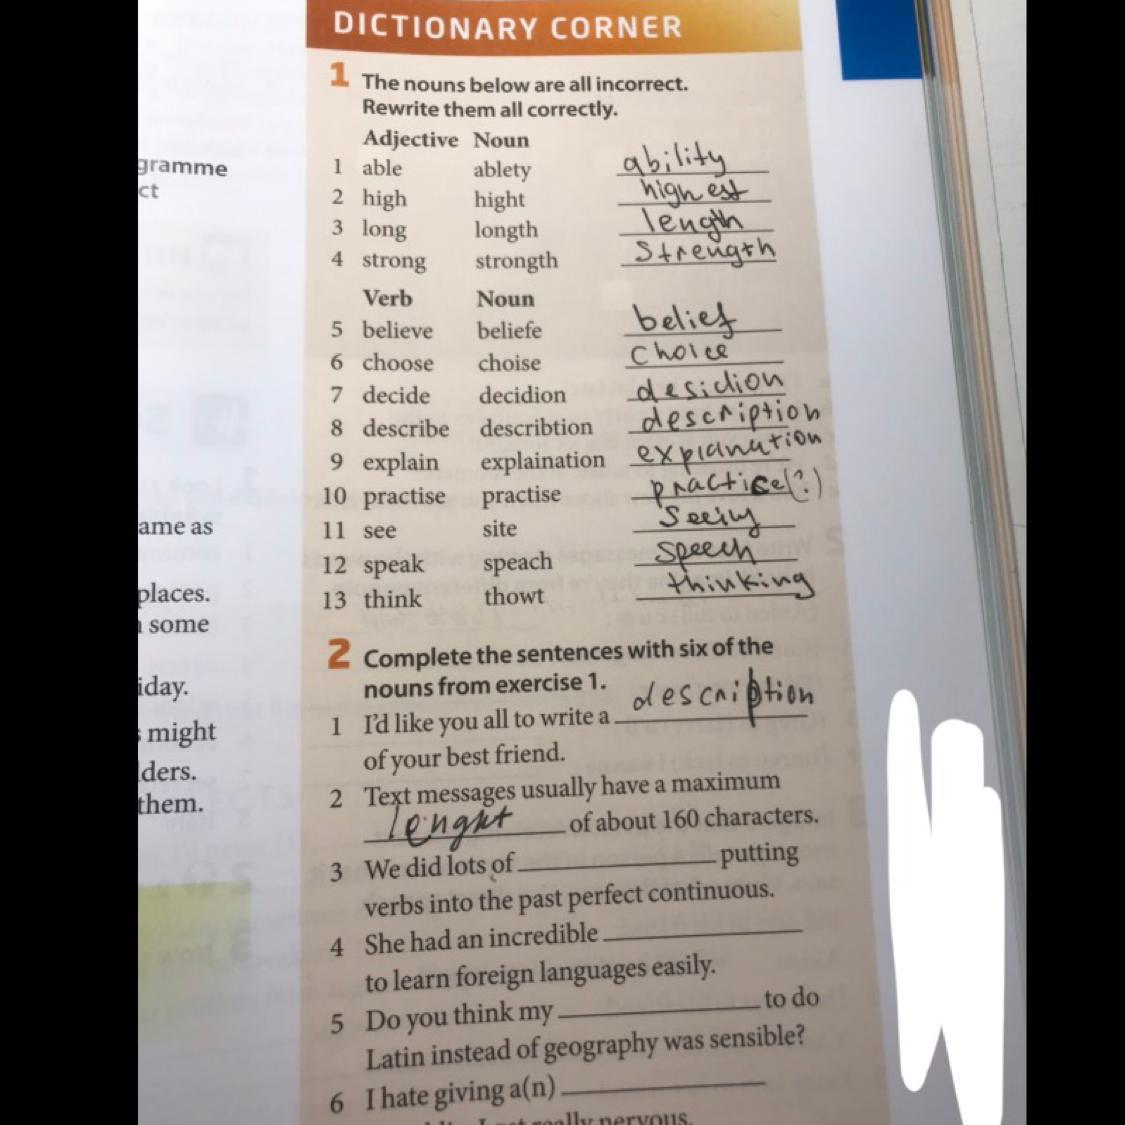 DICTIONARY CORNER
1 The nouns below are all incorrect.
Rewrite them all correctly.
Adjective Noun
1 able ablety ability
2 high hight highest
3 long longth length
4 strong strongth Strength
Verb Noun
5 believe beliefe belief
6 choose choise choice
7 decide decidion desidion
8 describe describtion description
9 explain explaination explanation
10 practise practise practice(?)
11 see site Seeing
12 speak speach speech
13 think thowt thinking
2 Complete the sentences with six of the
nouns from exercise 1.
1 I'd like you all to write a description
of your best friend.
2 Text messages usually have a maximum
lenght of about 160 characters.
3 We did lots of putting
verbs into the past perfect continuous.
4 She had an incredible
to learn foreign languages easily.
5 Do you think my to do
Latin instead of geography was sensible?
6 I hate giving a(n)
really nervous.
gramme
ct
ame as
places.
some
iday.
might
ders.
them.